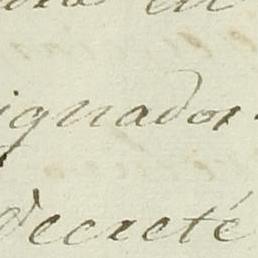 ignador
decreté